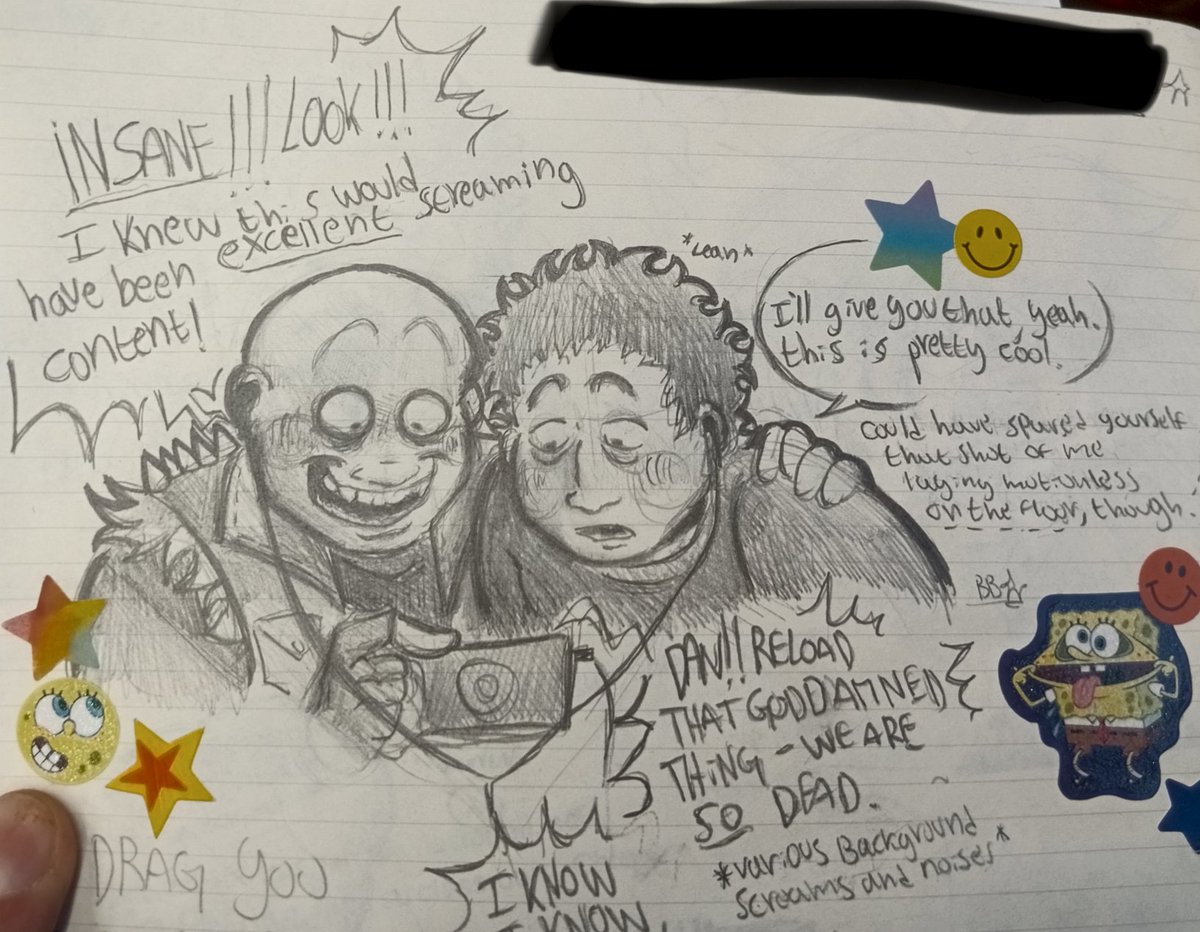 INSANE!!! LOOK!!!
I knew this would
have been excellent screaming
content!
*Lean*
I'll give you that, yeah.
this is pretty cool.
could have spared yourself
that shot of me
laying motionless
on the floor, though.
BB
DAN!! RELOAD
THAT GODDAMNED
THING - WE ARE
SO DEAD.
*various Background
screams and noises*
I KNOW
I KNOW.
DRAG YOU